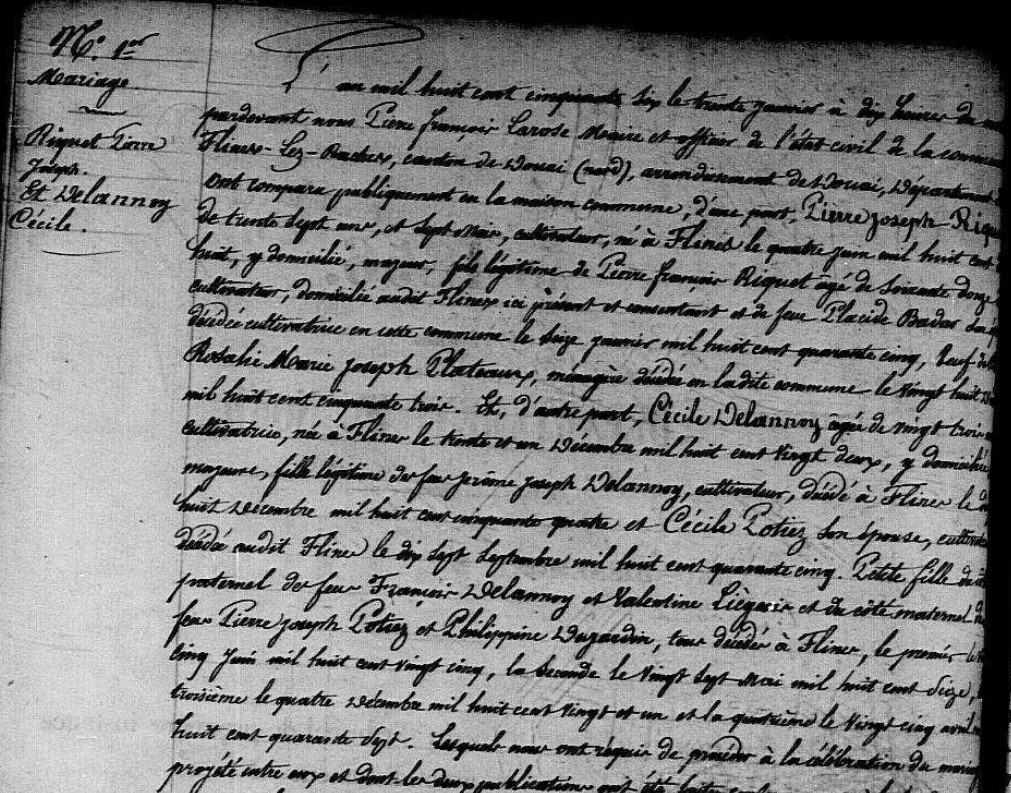 N.° 1.er
Mariage.
Riquet Pierre
Joseph.
Et Delannoy
Cécile.
L'an mil huit cent cinquante six le trente janvier à dix heures du
pardevant nous Pierre françois Larose Maire et officier de l'état civil de la commune
Flines-Lez-Raches, canton de Douai (nord), arrondissement de Douai, Département
ont comparu publiquement en la maison commune, d'une part, Pierre joseph Riquet
de trente sept ans, et sept Mois, cultivateur, né à Flines le quatre juin mil huit cent
huit, y domicilié, majeur, fils légitime de Pierre françois Riquet âgé de Soixante douze
cultivateur, domicilié audit Flines ici présent et consentant et de feue Placide Badar Son
décédée cultivatrice en cette commune le Seize janvier mil huit cent quarante cinq, Veuf de
Rosalie Marie joseph Plateaux, ménagère décédée en ladite commune le Vingt huit
mil huit cent cinquante trois. Et, d'autre part, Cécile Delannoy âgée de vingt trois
cultivatrice, née à Flines le trente et un Décembre mil huit cent Vingt deux, y domiciliée
majeure, fille légitime de feu jérôme joseph Delannoy, cultivateur, décédé à Flines le
huit Décembre mil huit cent cinquante quatre et Cécile Potiez Son épouse,
décédée audit Flines le dix Sept Septembre mil huit cent quarante cinq. Petite fille du
paternel de feu François Delannoy et Valentine Liégeois et du côté maternel
feu Pierre joseph Potiez et Philippine Dujardin, tous décédés à Flines, le premier le
cinq juin mil huit cent Vingt cinq, la Seconde le Vingt Sept Mai mil huit cent Seize,
troisième le quatre Décembre mil huit cent Vingt et un et la quatrième le Vingt cinq avril
huit cent quarante Sept. Lesquels nous ont requis de procéder à la célébration du mariage
projeté entre eux et dont les deux publications ont été faites